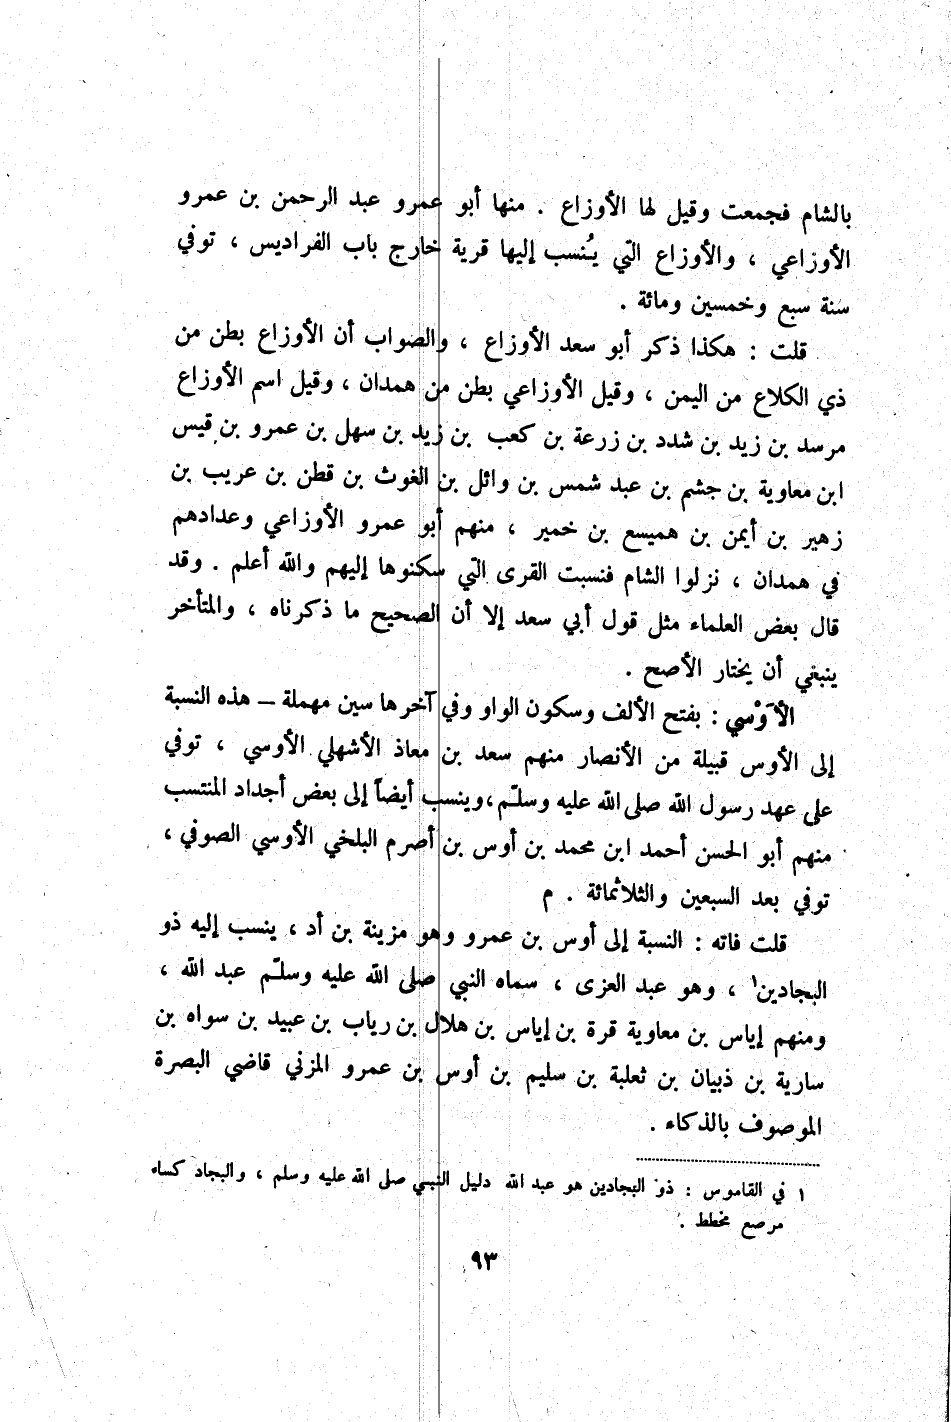 بالشام فجمعت وقيل لها الأوزاع . منها أبو عمرو عبد الرحمن بن عمرو
الأوزاعي ، والأوزاع التي يُنسب إليها قرية خارج باب الفراديس ، توفي
سنة سبع وخمسين ومائة .
قلت : هكذا ذكر أبو سعد الأوزاع ، والصواب أن الأوزاع بطن من
ذي الكلاع من اليمن ، وقيل الأوزاعي بطن من همدان ، وقيل اسم الأوزاع
مرسد بن زيد بن شدد بن زرعة بن كعب بن زيد بن سهل بن عمرو بن قيس
ابن معاوية بن جشم بن عبد شمس بن وائل بن الغوث بن قطن بن عريب بن
زهير بن أيمن بن هميسع بن خمير ، منهم أبو عمرو الأوزاعي وعدادهم
في همدان ، نزلوا الشام فنسبت القرى التي سكنوها إليهم والله أعلم . وقد
قال بعض العلماء مثل قول أبي سعد إلا أن الصحيح ما ذكرناه ، والمتأخر
ينبغي أن يختار الأصح .
الأَوْسي : بفتح الألف وسكون الواو وفي آخرها سين مهملة — هذه النسبة
إلى الأوس قبيلة من الأنصار منهم سعد بن معاذ الأشهلي الأوسي ، توفي
على عهد رسول الله صلى الله عليه وسلّم ، وينسب أيضاً إلى بعض أجداد المنتسب
منهم أبو الحسن أحمد ابن محمد بن أوس بن أصرم البلخي الأوسي الصوفي ،
توفي بعد السبعين والثلاثمائة . م
قلت فاته : النسبة إلى أوس بن عمرو وهو مزينة بن أد ، ينسب إليه ذو
البجادين١ ، وهو عبد العزى ، سماه النبي صلى الله عليه وسلّم عبد الله ،
ومنهم إياس بن معاوية قرة بن إياس بن هلال بن رياب بن عبيد بن سواه بن
سارية بن ذبيان بن ثعلبة بن سليم بن أوس بن عمرو المزني قاضي البصرة
الموصوف بالذكاء .
١ في القاموس : ذو البجادين هو عبد الله دليل النبي صلى الله عليه وسلم ، والبجاد كساء
مرصع مخطط .
٩٣